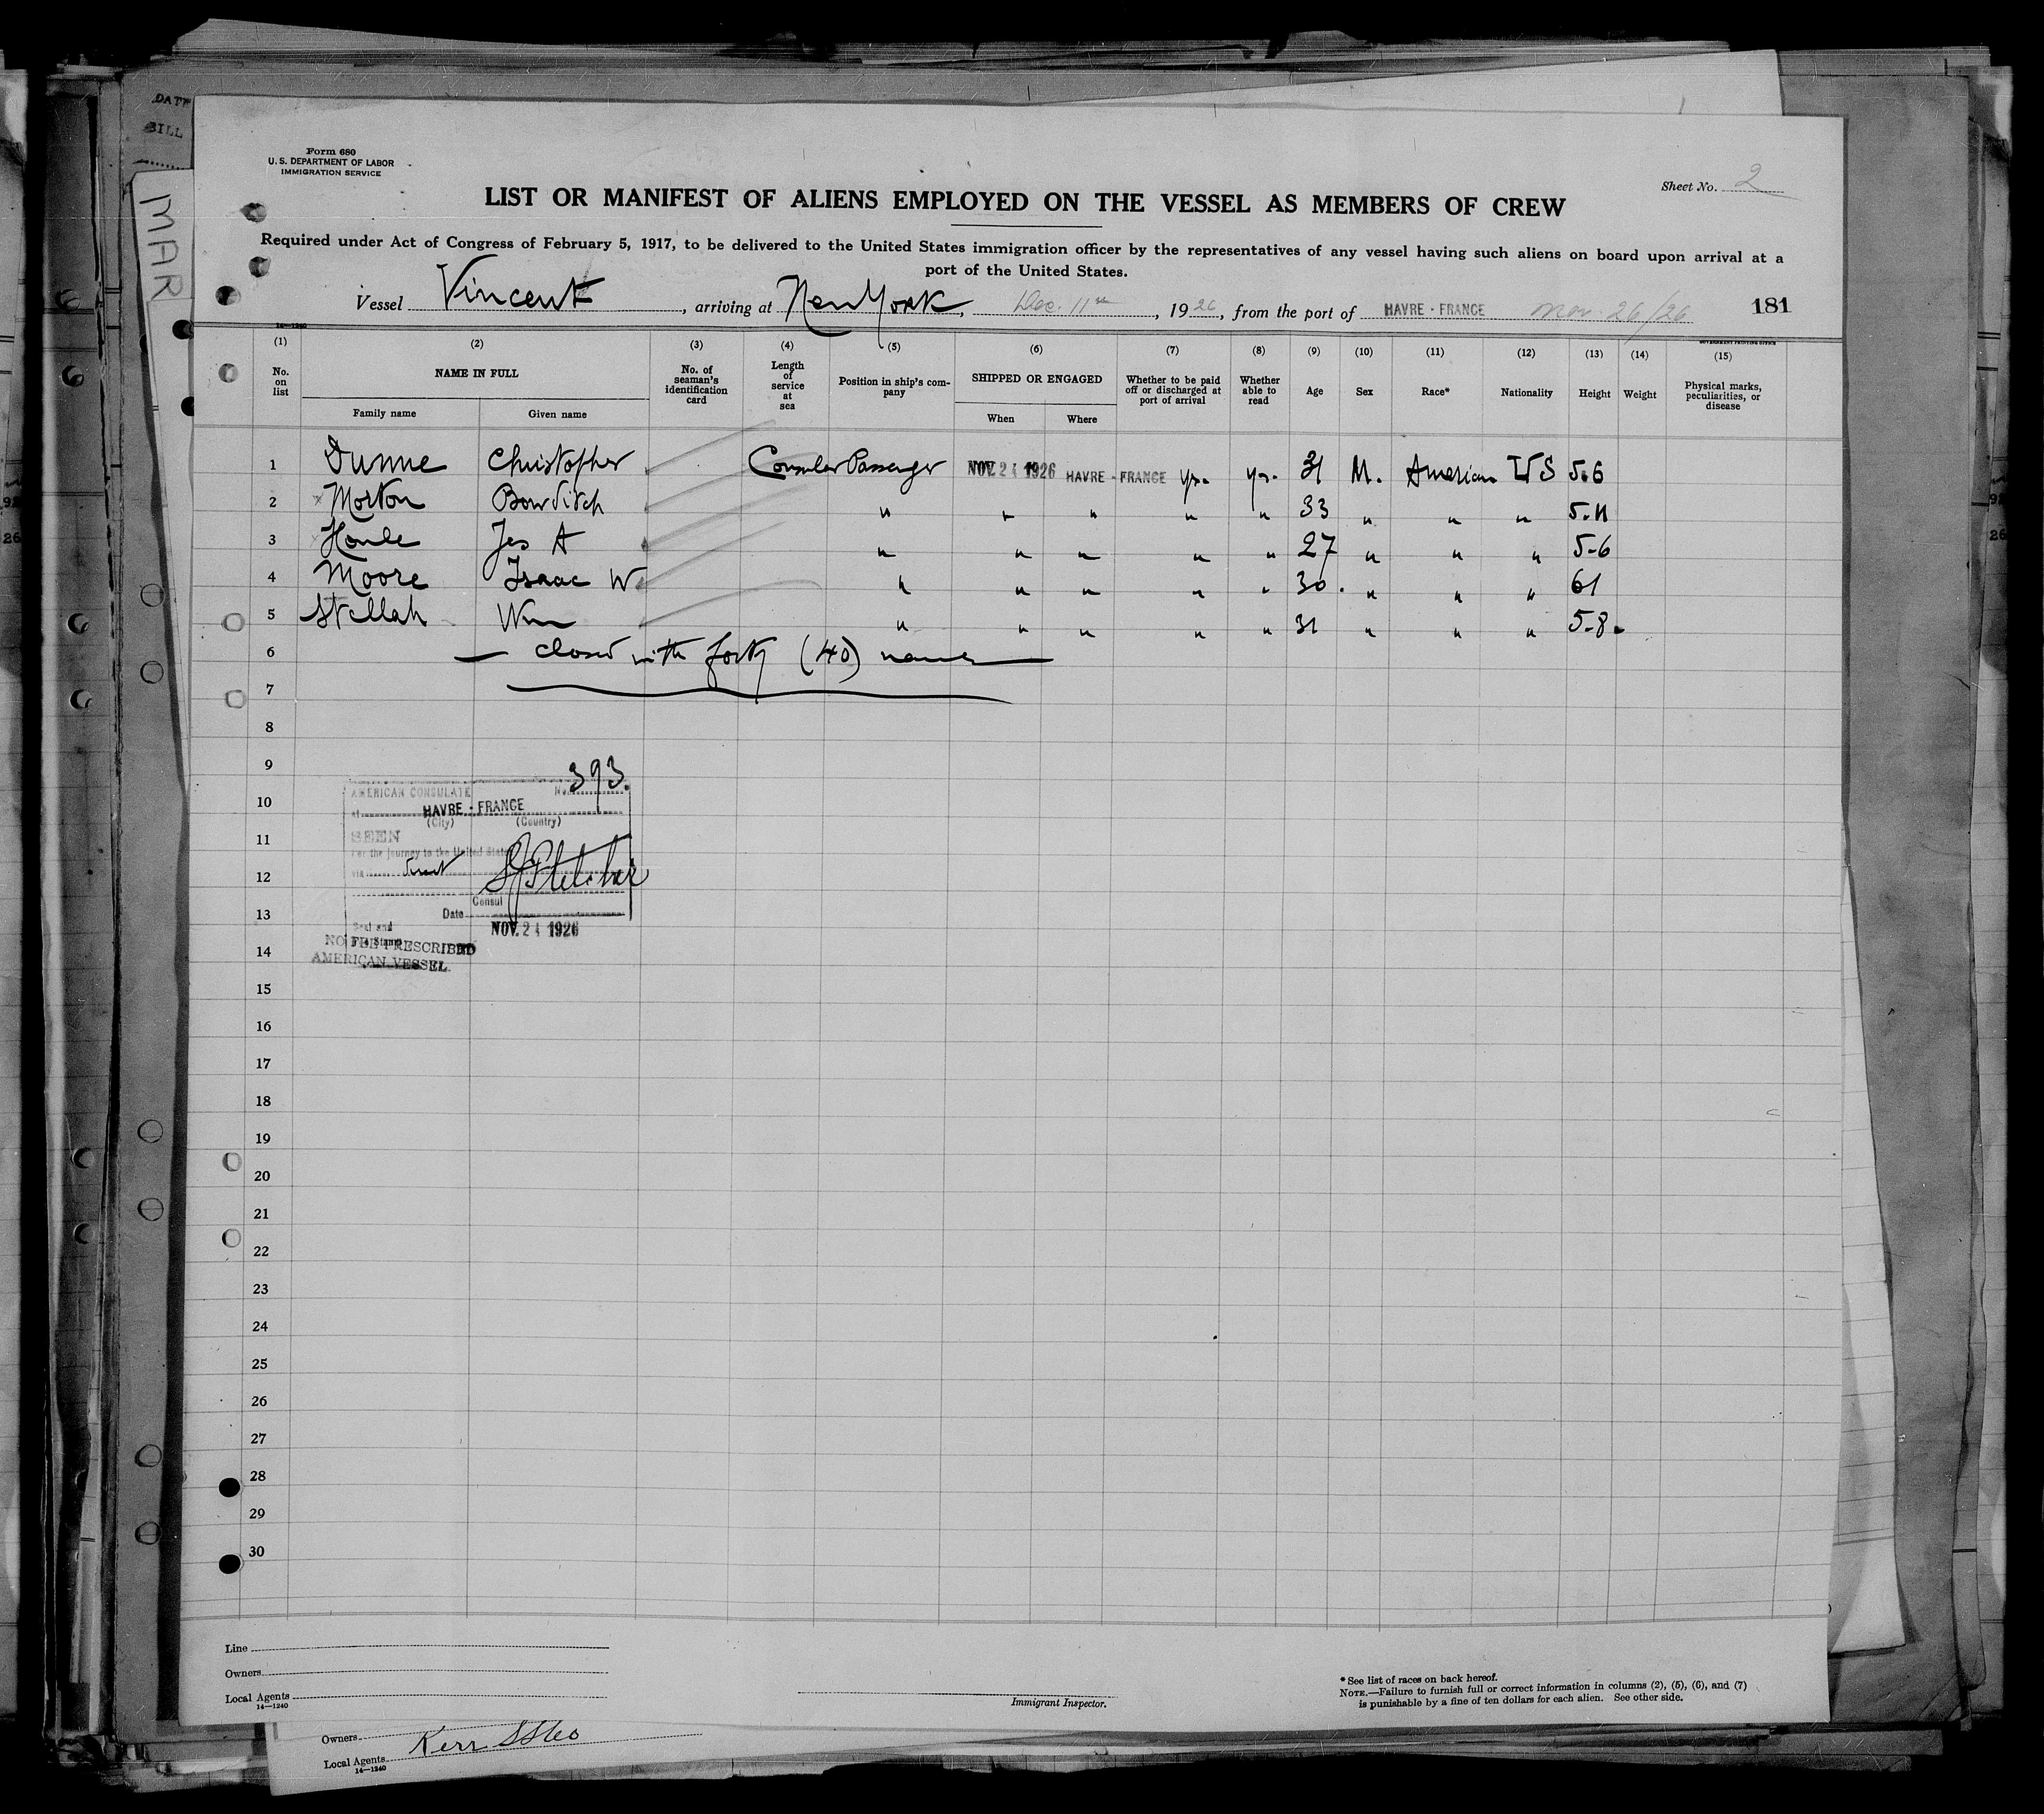 DATE
BILL
MAR
Form 680
U. S. DEPARTMENT OF LABOR
IMMIGRATION SERVICE
Sheet No. 2
LIST OR MANIFEST OF ALIENS EMPLOYED ON THE VESSEL AS MEMBERS OF CREW
Required under Act of Congress of February 5, 1917, to be delivered to the United States immigration officer by the representatives of any vessel having such aliens on board upon arrival at a
port of the United States.
Vessel Vincent, arriving at New York, Dec. 11th, 1926, from the port of HAVRE - FRANCE Nov. 26/26 181
14—1240
GOVERNMENT PRINTING OFFICE
(1) (2) (3) (4) (5) (6) (7) (8) (9) (10) (11) (12) (13) (14) (15)
No. on list NAME IN FULL No. of seaman's identification card Length of service at sea Position in ship's company SHIPPED OR ENGAGED Whether to be paid off or discharged at port of arrival Whether able to read Age Sex Race* Nationality Height Weight Physical marks, peculiarities, or disease
Family name Given name When Where
1 Dunne Christopher Consular Passenger NOV. 24 1926 HAVRE - FRANCE yes yes 31 M. American US 5.6
2 Morton Bowditch " " " " " 33 " " " 5.11
3 Houle Jas A " " " " " 27 " " " 5-6
4 Moore Isaac W " " " " " 30. " " " 61
5 Stellah Wm " " " " " 31 " " " 5-8.
6 — closed with forty (40) names —
7
8
9
393.
10
AMERICAN CONSULATE No.
at HAVRE - FRANCE
(City) (Country)
11
SEEN
For the journey to the United States
12
via direct
Fletcher
Consul
13
Date NOV. 24 1926
Seal and
Fee Stamp
14
NO FEE PRESCRIBED
AMERICAN VESSEL
15
16
17
18
19
20
21
22
23
24
25
26
27
28
29
30
Line
Owners
Local Agents
14—1240
Immigrant Inspector.
* See list of races on back hereof.
NOTE.—Failure to furnish full or correct information in columns (2), (5), (6), and (7)
is punishable by a fine of ten dollars for each alien. See other side.
Owners
Local Agents Kerr SS Co
14—1240